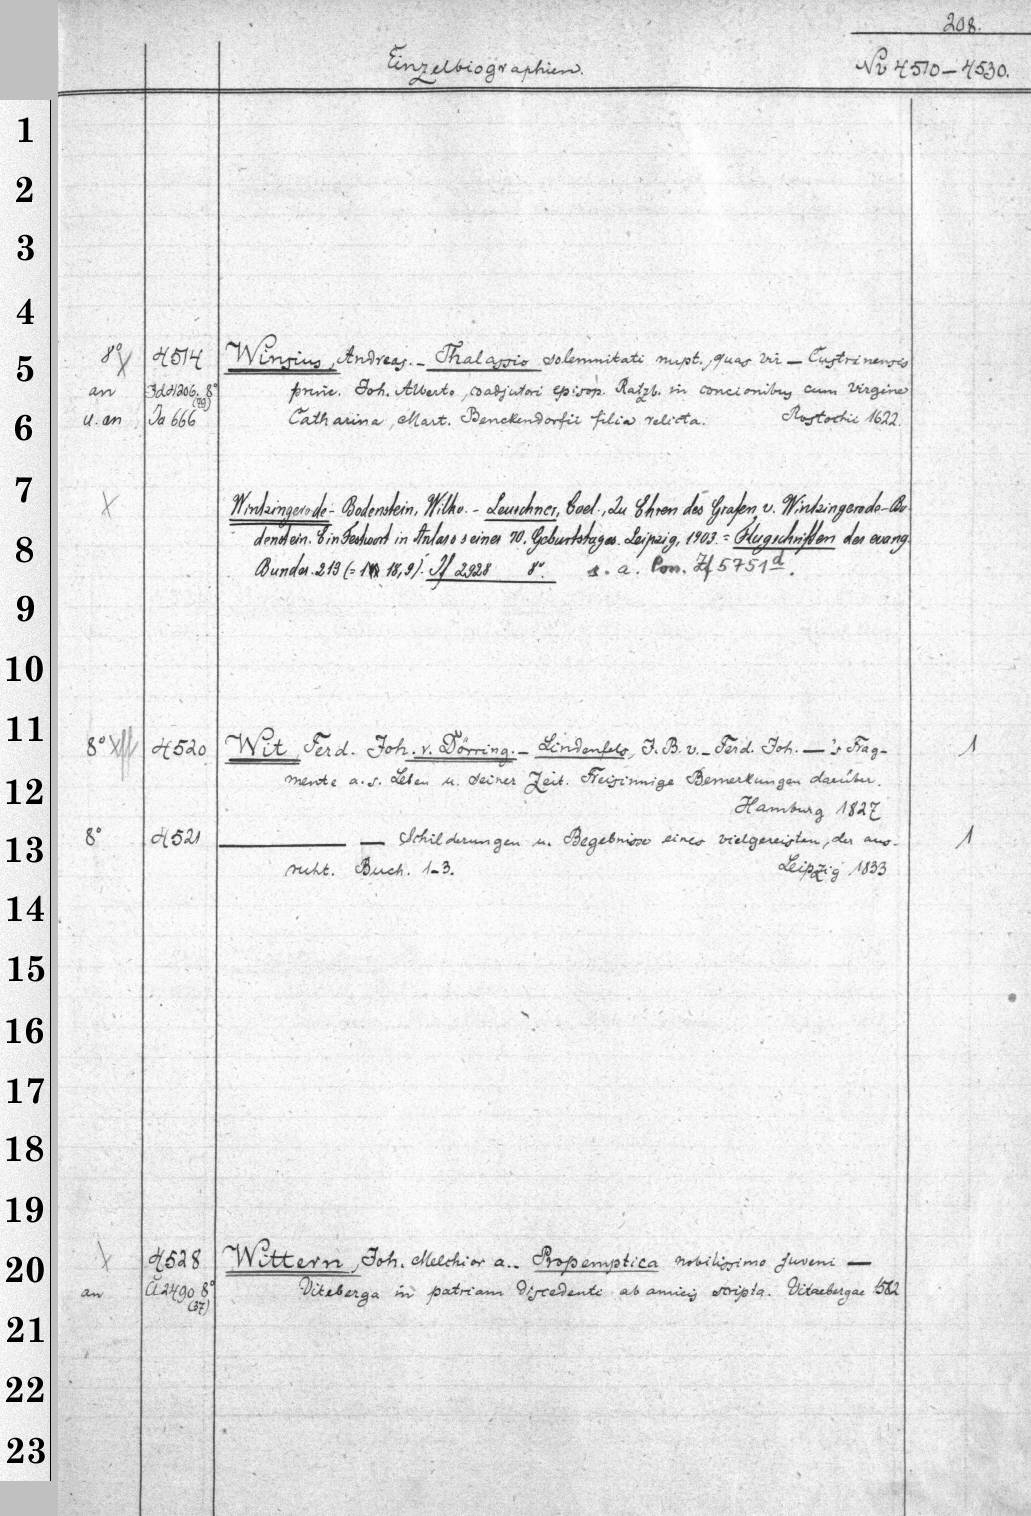 208.
Einzelbiographien.
Nv 4510-4530.
1
2
3
4
5
6
7
8
9
10
11
12
13
14
15
16
17
18
19
20
21
22
23
8° 4514 Winsius, Andreas. - Thalassio solemnitati nupt., quas vir — Custrinensis
an 8° (79) princ. Joh. Alberto, coadjutori episop. Ratzb. in concionibus cum virgine
u. an Ja 666 Catharina, Mart. Benckendorfii filia relicta. Rostochii 1622.
Wintzingerode-Bodenstein, Wilko. - Leuschner, Coel., Zu Ehren des Grafen v. Wintzingerode-Bo-
denstein. Ein Festwort in Anlass seines 70. Geburtstages. Leipzig, 1903. = Flugschriften des evang.
Bundes. 213 (= 18,9). If 2928 8°. s. a. Zf 5751d.
8° 4520 Wit, Ferd. Joh. v. Dörring. - Lindenfels, J. B. v. - Ferd. Joh. — 's Frag- 1
mente a. s. Leben u. seiner Zeit. Freisinnige Bemerkungen darüber.
Hamburg 1827
8° 4521 — — Schilderungen u. Begebnisse eines vielgereisten, der aus- 1
ruht. Buch. 1-3. Leipzig 1833
4528 Wittern, Joh. Melchior a. - Propemptica nobilissimo juveni —
an 2490 8° (37) Viteberga in patriam discedenti ab amicis scripta. Vitaebergae 1582